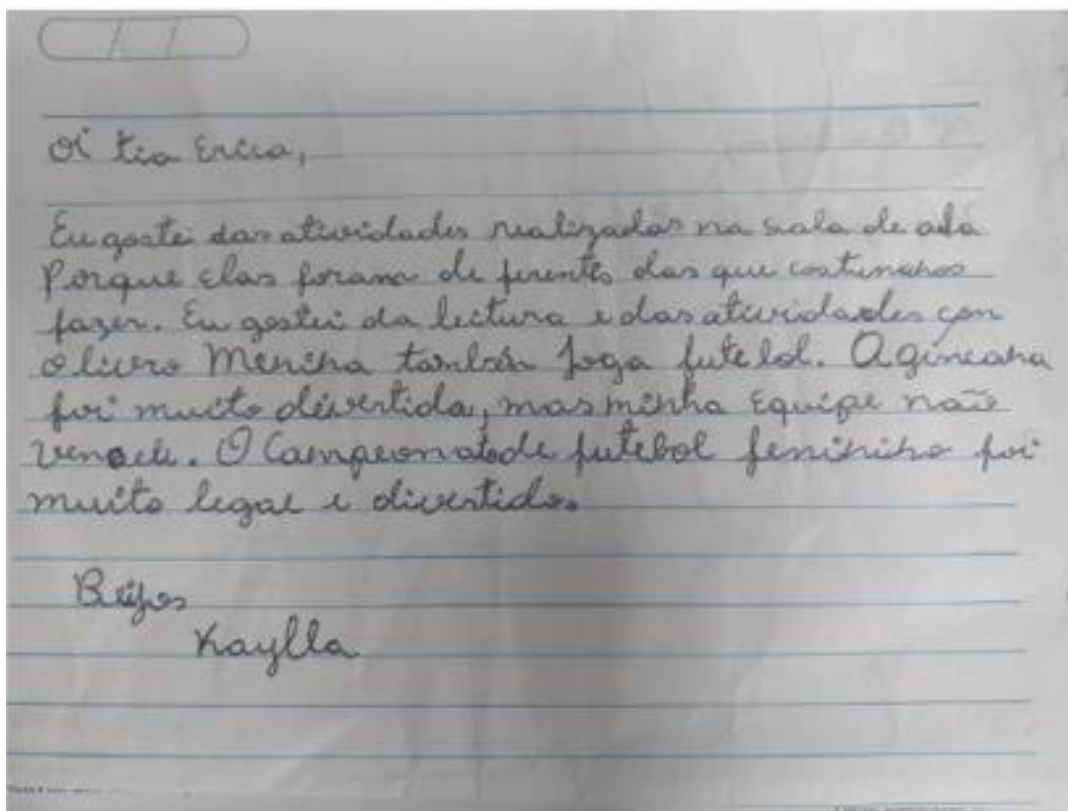 Oi tia Erica,
Eu gostei das atividades realizadas na sala de aula
Porque elas foram de ferentes das que costumanos
fazer. Eu gostei da leitura e das atividades con
o livro Menina tanbén joga futebol. A gincana
foi muito divertida, mas minha equipe não
venceu. O Campeonato de futebol feminino foi
muito legal e divertido.
Beijos
Kaylla